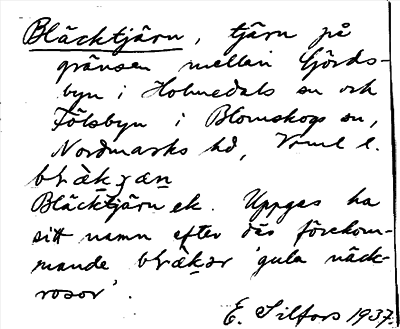 Bläcktjärn, tjärn på
gränsen mellan Gjords-
byn i Holmedals sn och
Fölsbyn i Blomskogs sn,
Nordmarks hd, Vrml l.
Bläcktjärn ek. Uppges ha
sitt namn efter där förekom-
mande 'gula näck-
rosor'.
E. Silfors 1937.